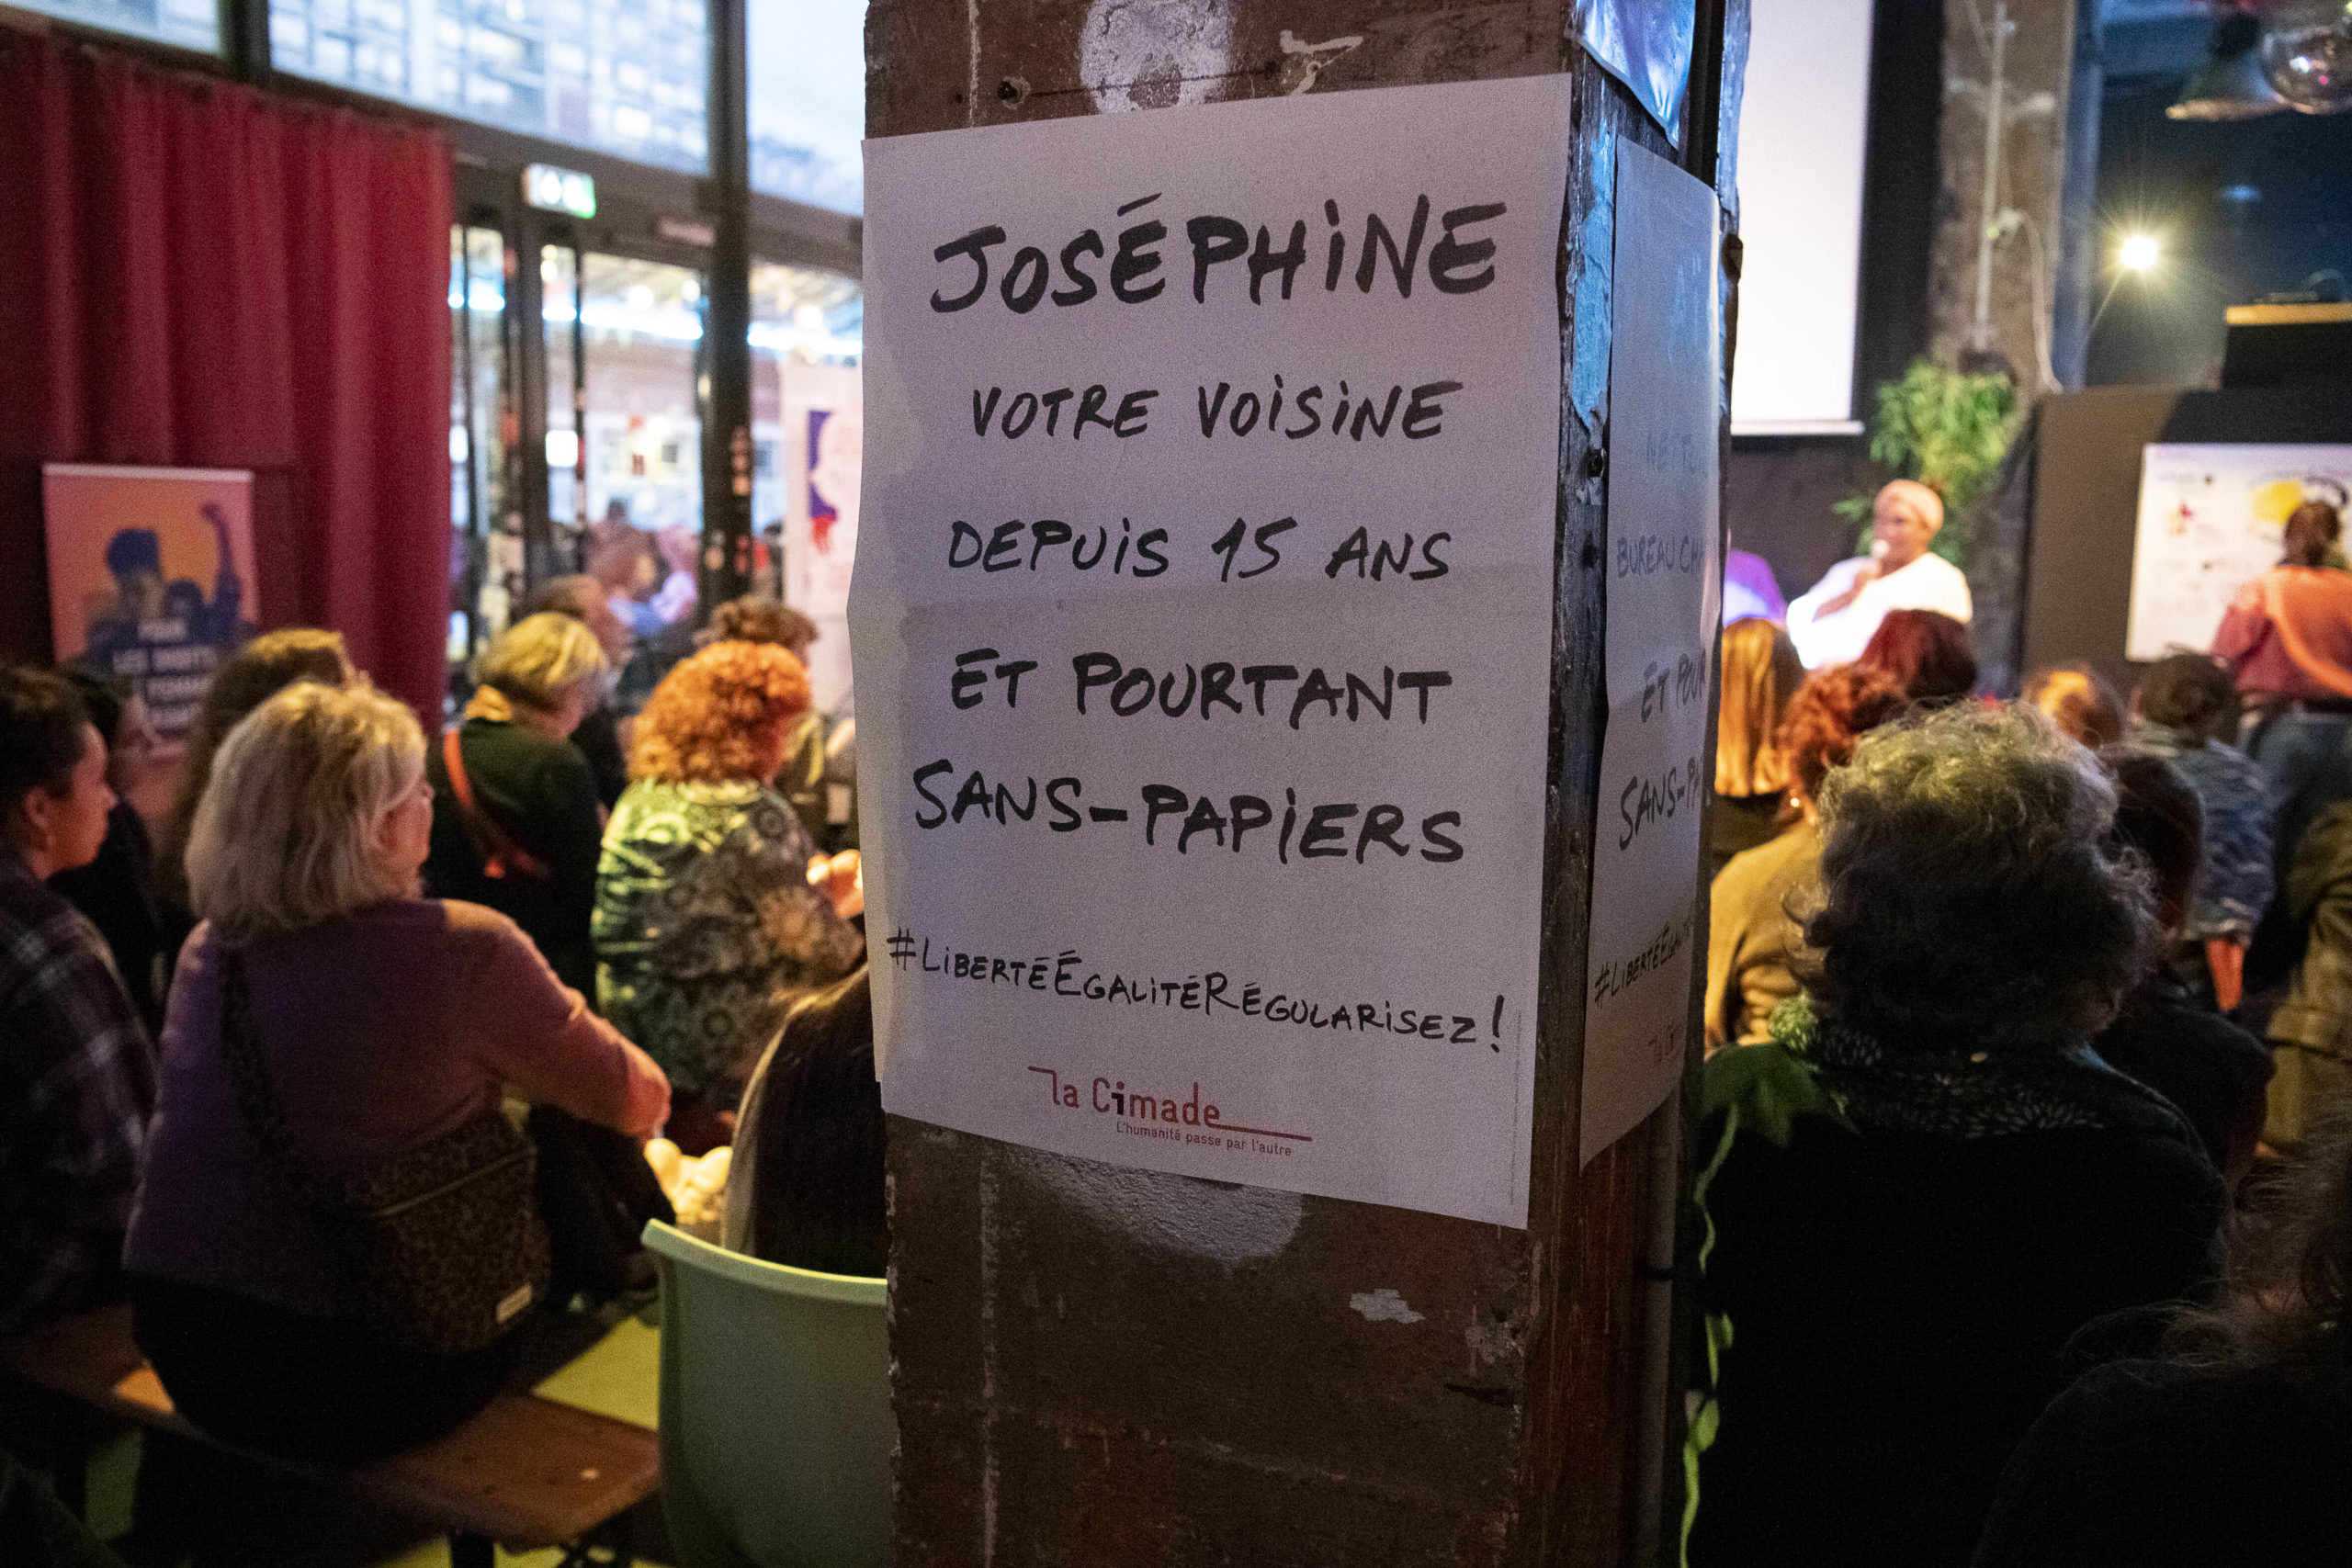 JOSÉPHINE
VOTRE VOISINE
DEPUIS 15 ANS
ET POURTANT
SANS-PAPIERS
#LIBERTÉÉGALITÉRÉGULARISEZ!
la Cimade
L'humanité passe par l'autre
BUREAU
ET POUR
SANS-PA
#LIBERTÉÉGALITÉ
la
POUR
LES DROITS